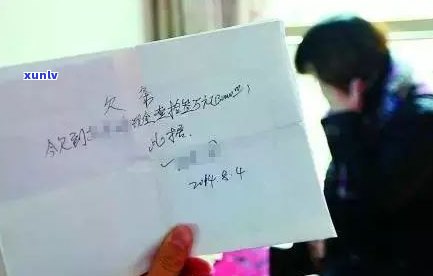 xunlv
欠条
今欠到: 现金壹拾叁万元
此据.
2014.8.4